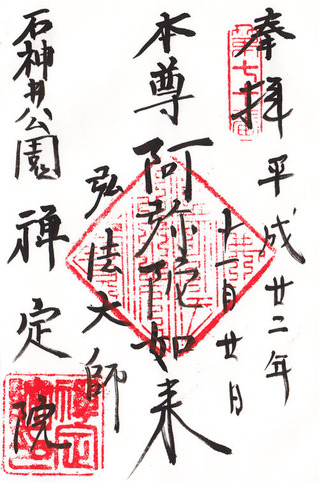 奉拝 平成廿二年
十一月廿日
本尊 阿弥陀如来
弘法大師
石神井公園 禅定院